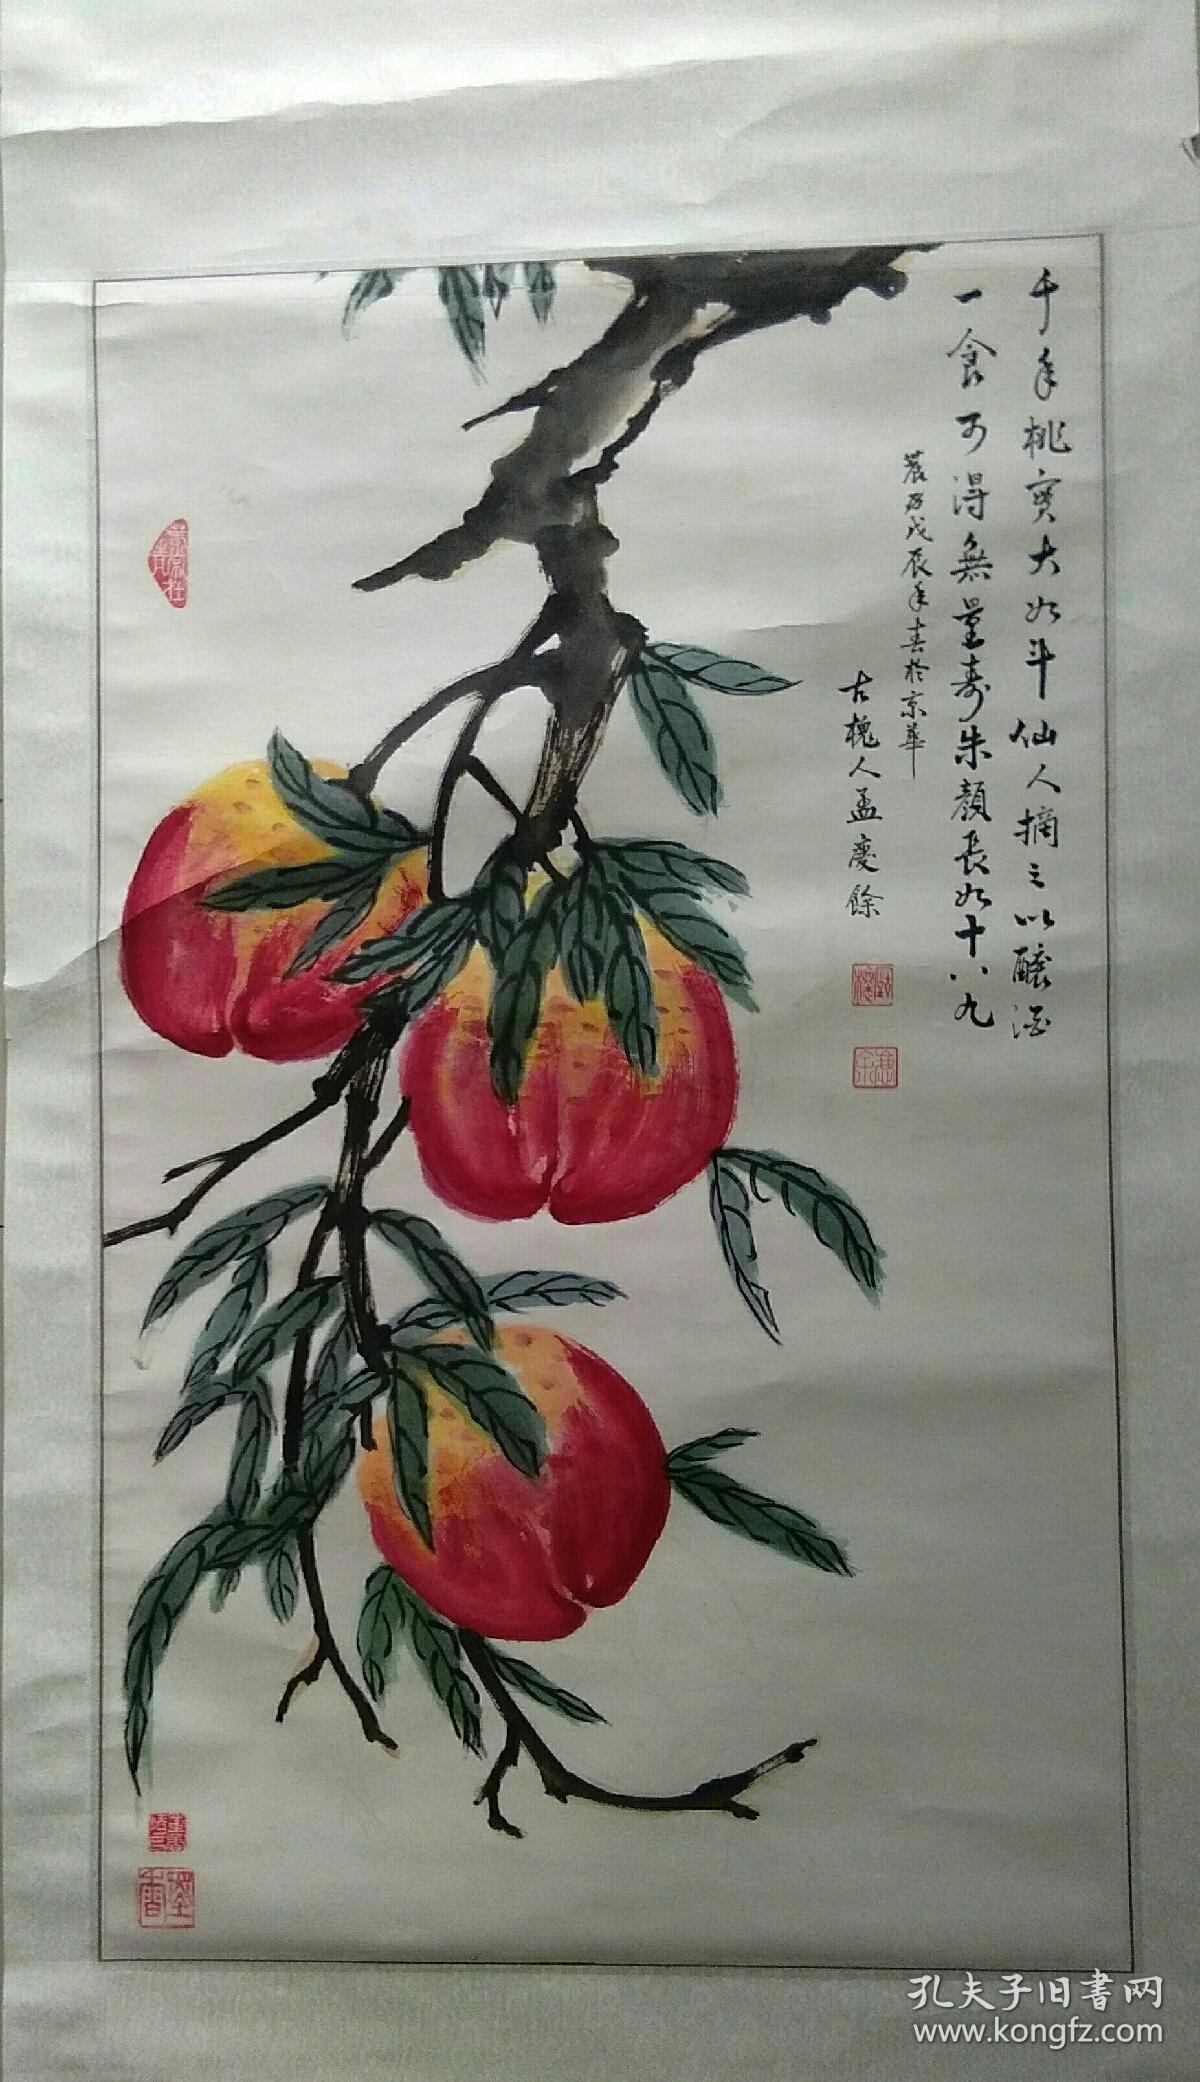 千年桃實大如斗仙人摘之以釀酒
一食可得無量壽朱顏長如十八九
歲次戊辰年春於京華
古槐人孟慶餘
孔夫子旧书网
www.kongfz.com